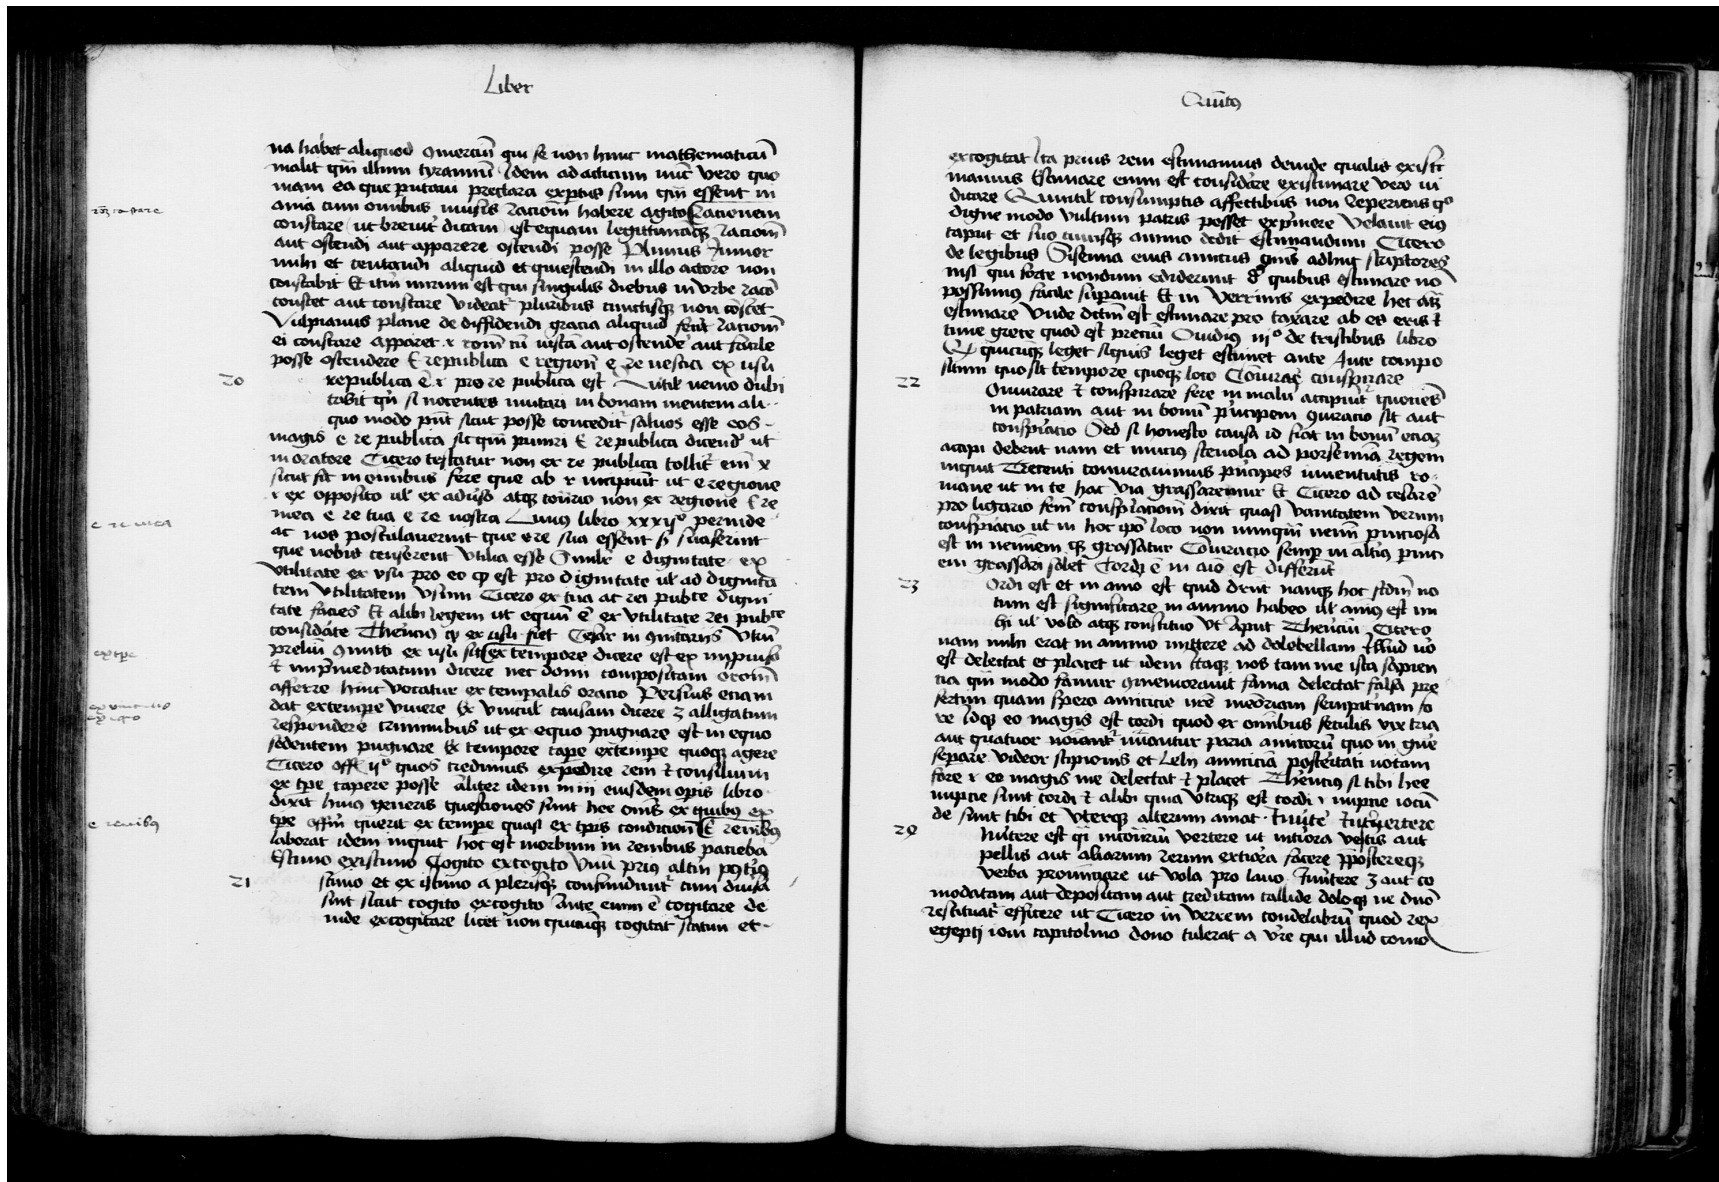 Liber
na habet aliquod 9merciū qui se non hunc mathematicū
malit qm̄ illum tyrannū Idem ad actium nūc vero quo
niam ea que putaui preclara expertus sum qm̄ essent in
ania cum omnibus musis racionē habere cogito Racionem
constare ut breuit̄ dicam est equam legittimāqȝ racionē
aut ostendi aut apparere ostendi posse Plinius Junior
nihil et tentandi aliquid et quiescendi in illo actore non
constabit Et itm̄ mirum est qui singulis diebus in vrbe racō
constet aut constare videat̄ pluribus cunctisqȝ non cōstet
Vulpianus plane de diffidendi gracia aliquid fecit racionē
ei constare apparet
posse ostendere E republica e regionē e re nestia ex usu
20 republica ē pro re publica est Quītil nemo dubi
tabit qn̄ si nocentes mutari in bonam mentem ali
quo modo pn̄t sicut posse concedit̄ saluos esse eos
magis e re publica sit qm̄ puniri E re publica dicend ut
in oratore Cicero testatur non ex re publica tollit̄ em̄ x
sicut fit in omībus fere que ab r incipiūt ut e regione
ex opposito ul ex aduso atqȝ contrario non ex regione E re
mea e re tua e re nostra Liuius libro xxxijº perinde
ac uos postulauerint que e re sua essent suaserint
que uobis censerent vtilia esse Simulr e dignitate ex
vtilitate ex vsu pro eo qd est pro dignitate ul ad dignita
tem vtilitatem vsum Cicero ex tua ac rei pubce digni
tate facies Et alibi legem ut equū ē ex vtilitate rei pubce
considāte Therēcius ex usu fiet Cesar in 9mētariis vtrū
prelium 9mitti ex usu sit ex tempore dicere est ex improuiso
et impremeditatum dicere nec domi compositam orōnē
afferre hinc vocatur ex tempalis oracio Persius etiam
dat extempe viuere Ex vincul causam dicere ȝ alligatum
respondere criminibus ut ex equo pugnare est in equo
sedentem pugnare Ex tempore cape extempe quoqȝ agere
Cicero off ijº quos credimus expedire rem et consilium
ex tpe capere posse aliter idem in iii eiusdem opis libro
dixit huius generis questiones sunt hee om̄s ex quibus ex
tpe offm̄ querit ex tempe quasi ex tpis condicionē E renibus
laborat idem inquit hoc est morbum in renibus pacieba
Estimo existimo Cogito excogito Vnū prius altm̄ post̄ius
21 stimo et existimo a plerisqȝ confundunt̄ cum diūsa
sint sicut cogito excogito ante enim ē cogitare de
inde excogitare licet non quicūqȝ cogitat statim ex
e re mea
ex tpe
e renibȝ
Quītꝯ
excogitat Ita prius rem estimamus deinde qualis existi
mamus Estimare enim est considare existimare vero iu
dicare Quintil consumptis affectibus non reperiens qº
digne modo vultum patris posset exprimere velauit eius
caput et suo cuiusqȝ animo dedit estimandum Cicero
de legibus Sisenna eius amicus om̄s adhuc scriptores
nisi qui forte nondum ediderunt de quibus estimare nō
possumus facile supauit Et in verrinis expedire hec atqȝ
estimare Vnde dictū est estimare pro taxare ab es eris et
time grece quod est preciū Ouidius iiiº de tristibus libro
Qui quicūqȝ leget siquis leget estimet ante Ante compo
situm quo sit tempore quoqȝ loco Cōiurare conspirare
22 Oniurare et conspirare fere in malū accipiūt quociēs
in patriam aut in bonū pncipem 9iuracio sit aut
conspiracio Sed si honesto causa id fiat in bonū eciaȝ
accipi debent nam et mucius sceuola ad porsennā regem
inquit Trecenti coniurauimus pncipes iuuentutis ro
mane ut in te hac via grassaremur Et Cicero ad cesarē
pro ligario fem̄ conspiracionē dixit quasi vanitatem verum
conspiracio ut in hoc ipō loco non nunquā neminē pniciosa
est in neminem qȝ grassatur Coniuracio semp in alicuius pnici
em grassari solet Cordi ē in aio est differūt
23 Ordi est et in aīno est quid dr̄nt nanqȝ hoc scdm̄ no
tum est significare in animo habeo ul animus est mi
hi ul volo atqȝ constituo vt aput Therēciū Cicero
nam nihil erat in animo mittere ad dolobellam Illud uō
est delectat et placet ut idem itaqȝ nos tam me ista sapien
cia qm̄ modo famur 9memorauit fama delectat falsa pre
sertim quam spero amicicie nr̄e memoriam sempitnam fo
re Idqȝ eo magis est cordi quod ex omnibus seculis vix tria
aut quatuor noīantr̄ inueniuntur paria amicorū quo in gne
separe videor scipionis et Lelii amiciciā posteritati notam
fore et eo magis me delectat et placet Therēcius si tibi hee
nupcie sunt cordi et alibi quia vtriqȝ est cordi nupcie iocū
de sunt tibi et vterqȝ alterum amat Inuite Inuertere
24 Inuertere est vertere ut interiora vestis aut
pellis aut aliarum rerum exteriora facere ppostereqȝ
verba pronunciare ut vola pro lauo Inuertere ȝ aut co
modatam aut depositam aut creditam callide doloqȝ ne dnō
restituat̄ efficere ut Cicero in verrem condelabrū quod rex
egepti ioui capitolino dono tulerat a vr̄e qui illud como